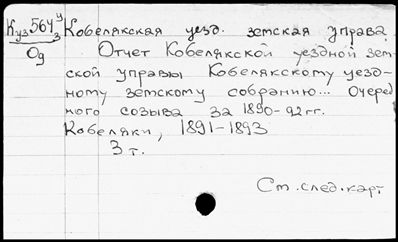 Куз 564 у/3 Кобелякская уезд. земская управа.
Од Отчет Кобелякской уездной зем-
ской управы Кобелякскому уезд-
ному земскому собранию... Очеред
ного созыва за 1890-92 гг.
Кобеляки, 1891-1893
3 т.
См. след. карт